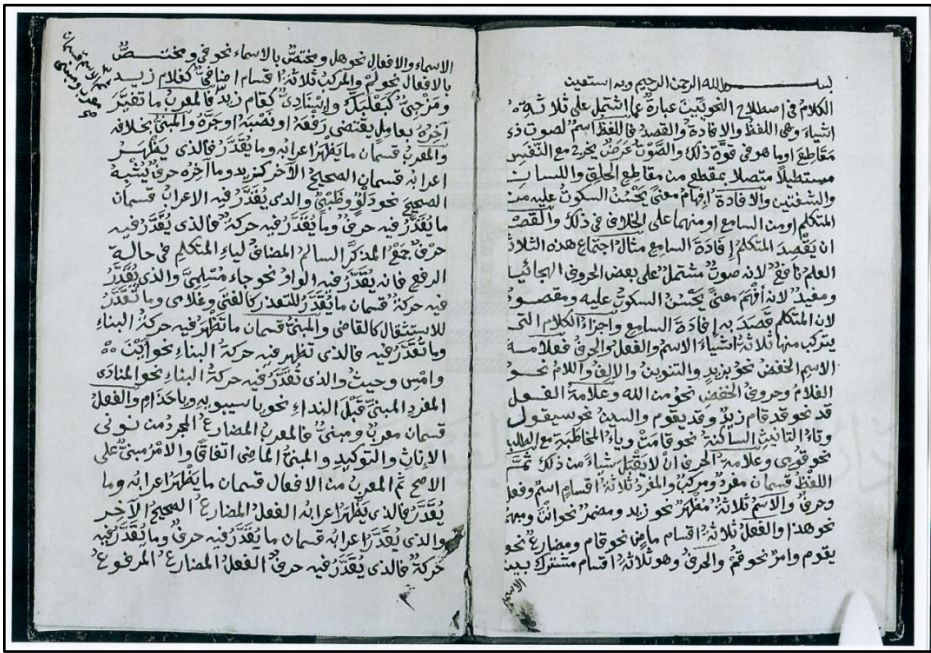 بسم الله الرحمن الرحيم وبه استعين
الكلام في اصطلاح النحويين عبارة عما اشتمل على ثلاثة
اشياء وهى اللفظ والافادة والقصد فاللفظ اسم لصوت ذي
مقاطع او ما هو في قوة ذلك والصوت عرض يخرج مع النفس
مستطيلا متصلا بمقطع من مقاطع الحلق واللسان
والشفتين والافادة افهام معنى يحسن السكوت عليه من
المتكلم او من السامع او منهما على الخلاف في ذلك والقصد
ان يقصد المتكلم افادة السامع مثال اجتماع هذه الثلاثة
العلم نافع لانه صوت مشتمل على بعض الحروف الهجائية
ومفيد لانه افهم معنى يحسن السكوت عليه ومقصود
لان المتكلم قصد به افادة السامع واجزاء الكلام التى
يتركب منها ثلاثة اشياء الاسم والفعل والحرف فعلامة
الاسم الخفض نحو بزيد والتنوين والالف واللام نحو
الغلام وحروف الخفض نحو من الله وعلامة الفعل
قد نحو قد قام زيد وقد يقوم والسين نحو سيقول
وتاء التانيث الساكنة نحو قامت وياء المخاطبة مع الطلب
نحو قومى وعلامة الحرف ان لا يقبل شياء من ذلك ثم
اللفظ قسمان مفرد ومركب والمفرد ثلاثة اقسام اسم وفعل
وحرف والاسم ثلاثة مظهر نحو زيد ومضمر نحو انت ومبهم
نحو هذا والفعل ثلاثة اقسام ماض نحو قام ومضارع نحو
يقوم وامر نحو قم والحرف وهو ثلاثة اقسام مشترك بين
الاسماء
الاسماء والافعال نحو هل ومختص بالاسماء نحو في ومختص
بالافعال نحو لم والمركب ثلاثة اقسام اضافي كغلام زيد
ومزجي كبعلبك واسنادي كقام زيد فالمعرب ما تغير
آخره بعامل يقتضى رفعه او نصبه او جره والمبني بخلافه
والمعرب قسمان ما يظهر اعرابه وما يقدر فالذى يظهر
اعرابه قسمان الصحيح الآخر كزيد وما آخره حرف يشبه
الصحيح نحو دلو وظبي والذى يقدر فيه الاعراب قسمان
ما يقدر فيه حرف وما يقدر فيه حركة فالذى يقدر فيه
حرف جمع المذكر السالم المضاف لياء المتكلم في حالة
الرفع فانه يقدر فيه الواو نحو جاء مسلمي والذى يقدر
فيه حركة قسمان ما يقدر للتعذر كالفتى وغلامى وما يقدر
للاستثقال كالقاضى والمبنى قسمان ما تظهر فيه حركة البناء
وما تقدر فيه فالذى تظهر فيه حركة البناء نحو اين
وامس وحيث والذى تقدر فيه حركة البناء نحو المنادى
المفرد المبنى قبل النداء نحو يا سيبويه ويا حذام والفعل
قسمان معرب ومبنى فالمعرب المضارع المجرد من نونى
الاناث والتوكيد والمبنى الماضى اتفاقا والامر مبنى على
الاصح ثم المعرب من الافعال قسمان ما يظهر اعرابه وما
يقدر فالذى يظهر اعرابه الفعل المضارع الصحيح الآخر
والذى يقدر اعرابه قسمان ما يقدر فيه حرف وما يقدر فيه
حركة فالذى يقدر فيه حرف الفعل المضارع المرفوع